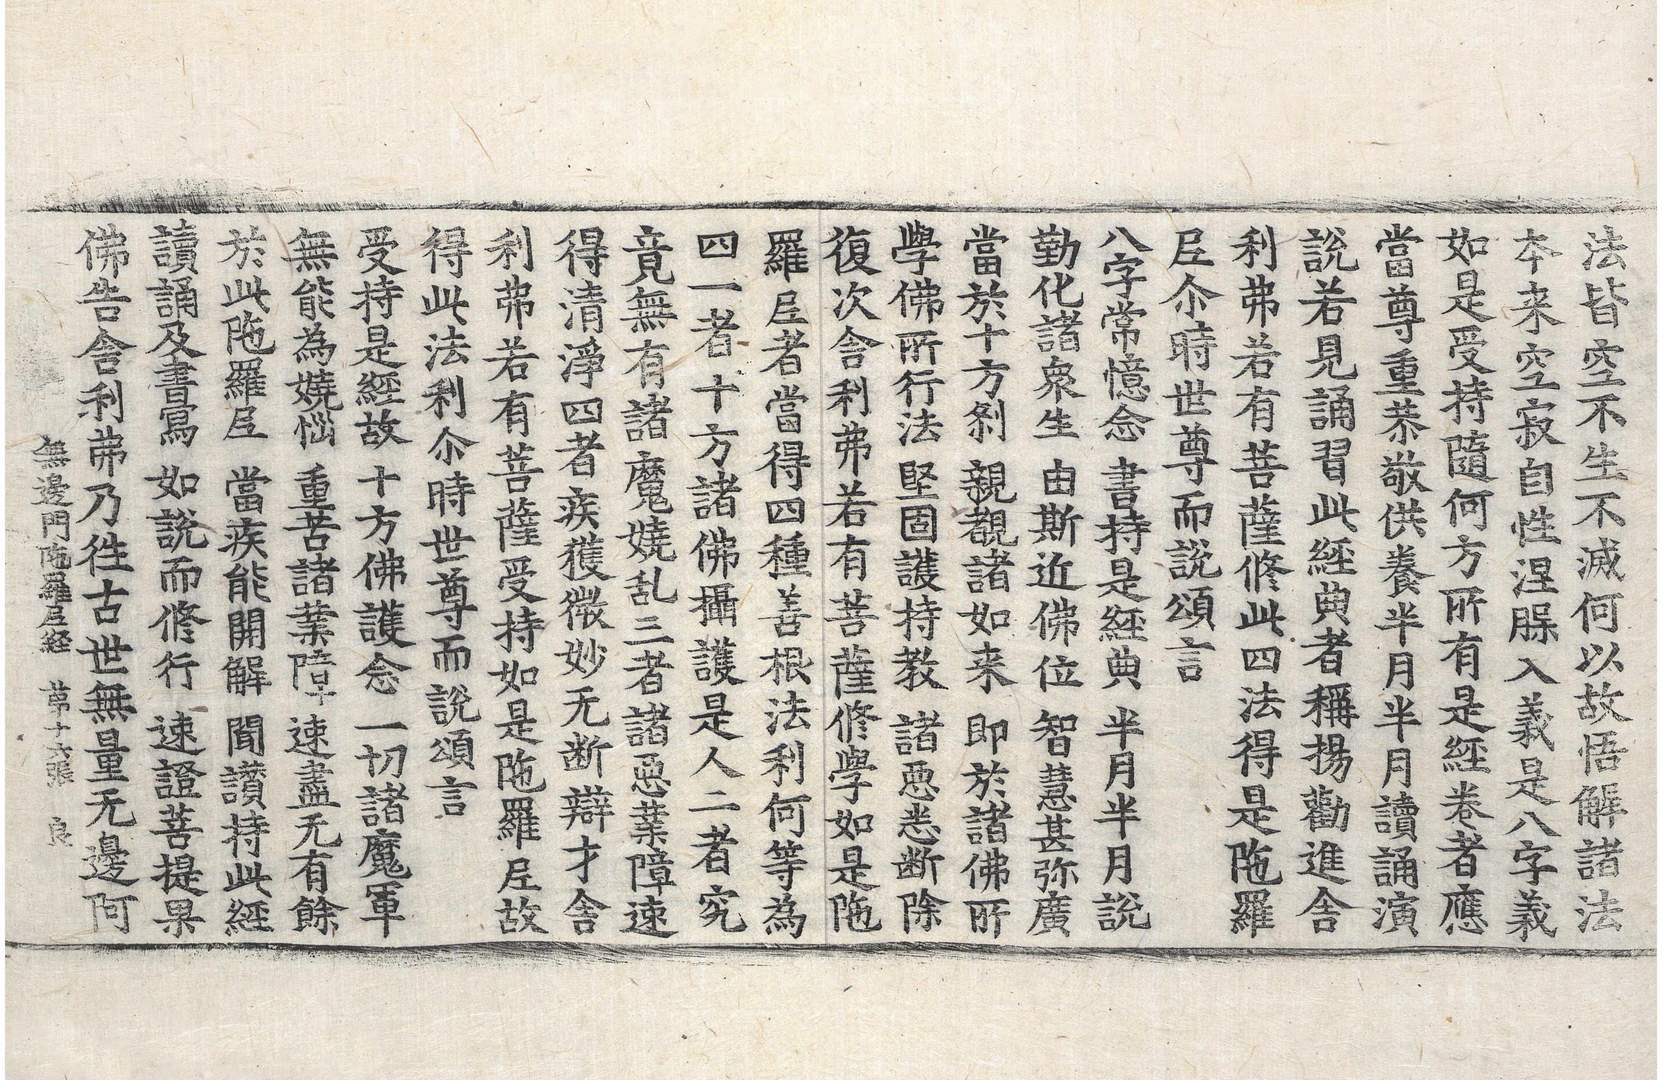 法皆空不生不滅何以故悟解諸法
本来空寂自性涅槃入義是八字義
如是受持隨何方所有是經卷者應
當尊重恭敬供養半月半月讀誦演
說若見誦習此經典者稱揚勸進舍
利弗若有菩薩修此四法得是陁羅
尼尒時世尊而說頌言
八字常憶念 書持是經典 半月半月說
勤化諸衆生 由斯近佛位 智慧甚弥廣
當於十方刹 親覩諸如来 即於諸佛所
學佛所行法 堅固護持教 諸惡悉断除
復次舍利弗若有菩薩修學如是陁
羅尼者當得四種善根法利何等為
四一者十方諸佛攝護是人二者究
竟無有諸魔嬈乱三者諸惡業障速
得清淨四者疾獲微妙无断辯才舍
利弗若有菩薩受持如是陁羅尼故
得此法利尒時世尊而說頌言
受持是經故 十方佛護念 一切諸魔軍
無能為嬈惱 重苦諸業障 速盡无有餘
於此陁羅尼 當疾能開解 聞讃持此經
讀誦及書寫 如說而修行 速證菩提果
佛告舍利弗乃往古世無量无邊阿
無邊門陁羅尼經 苐十六張 良